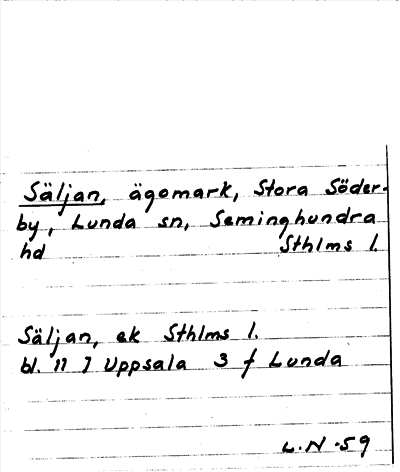 Säljan, ägomark, Stora Söder-
by, Lunda sn, Seminghundra
hd Sthlms l.
Säljan, ek Sthlms l.
bl. 11 I Uppsala 3 f Lunda
L.N.59